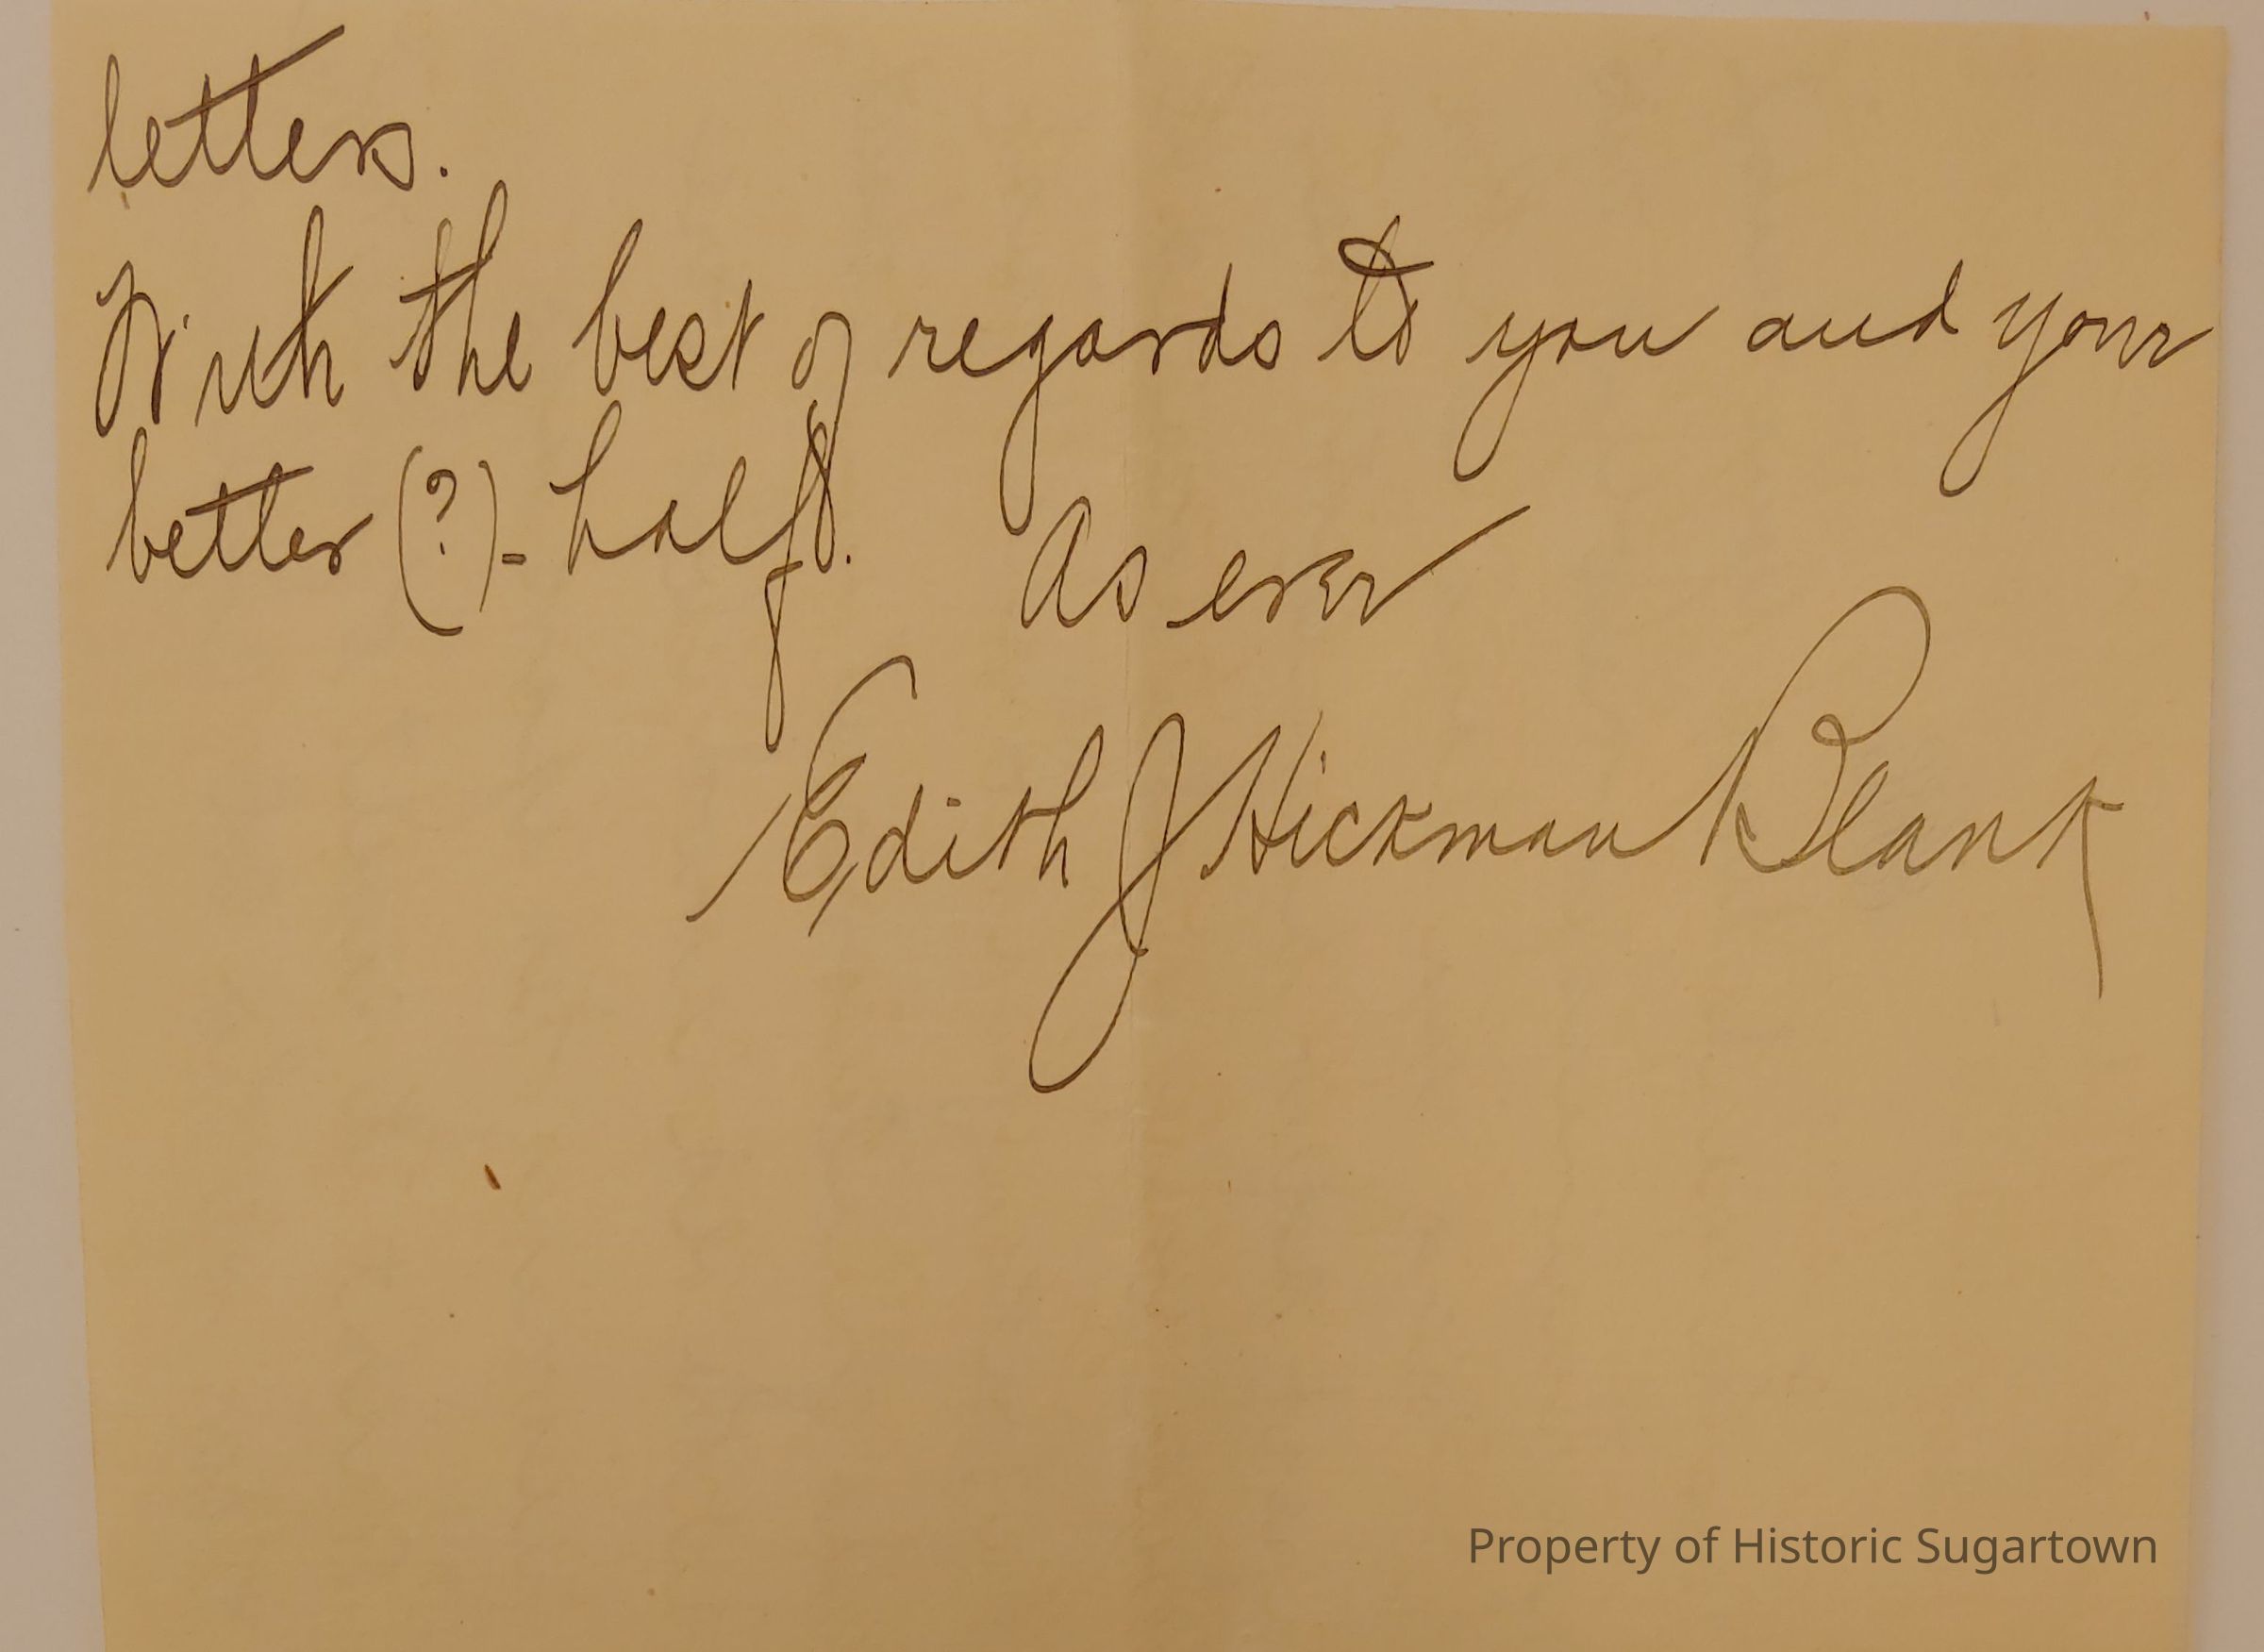 letters.
With the best of regards to you and your
better (?)- half.
As ever
Edith J Hickman Blank
Property of Historic Sugartown